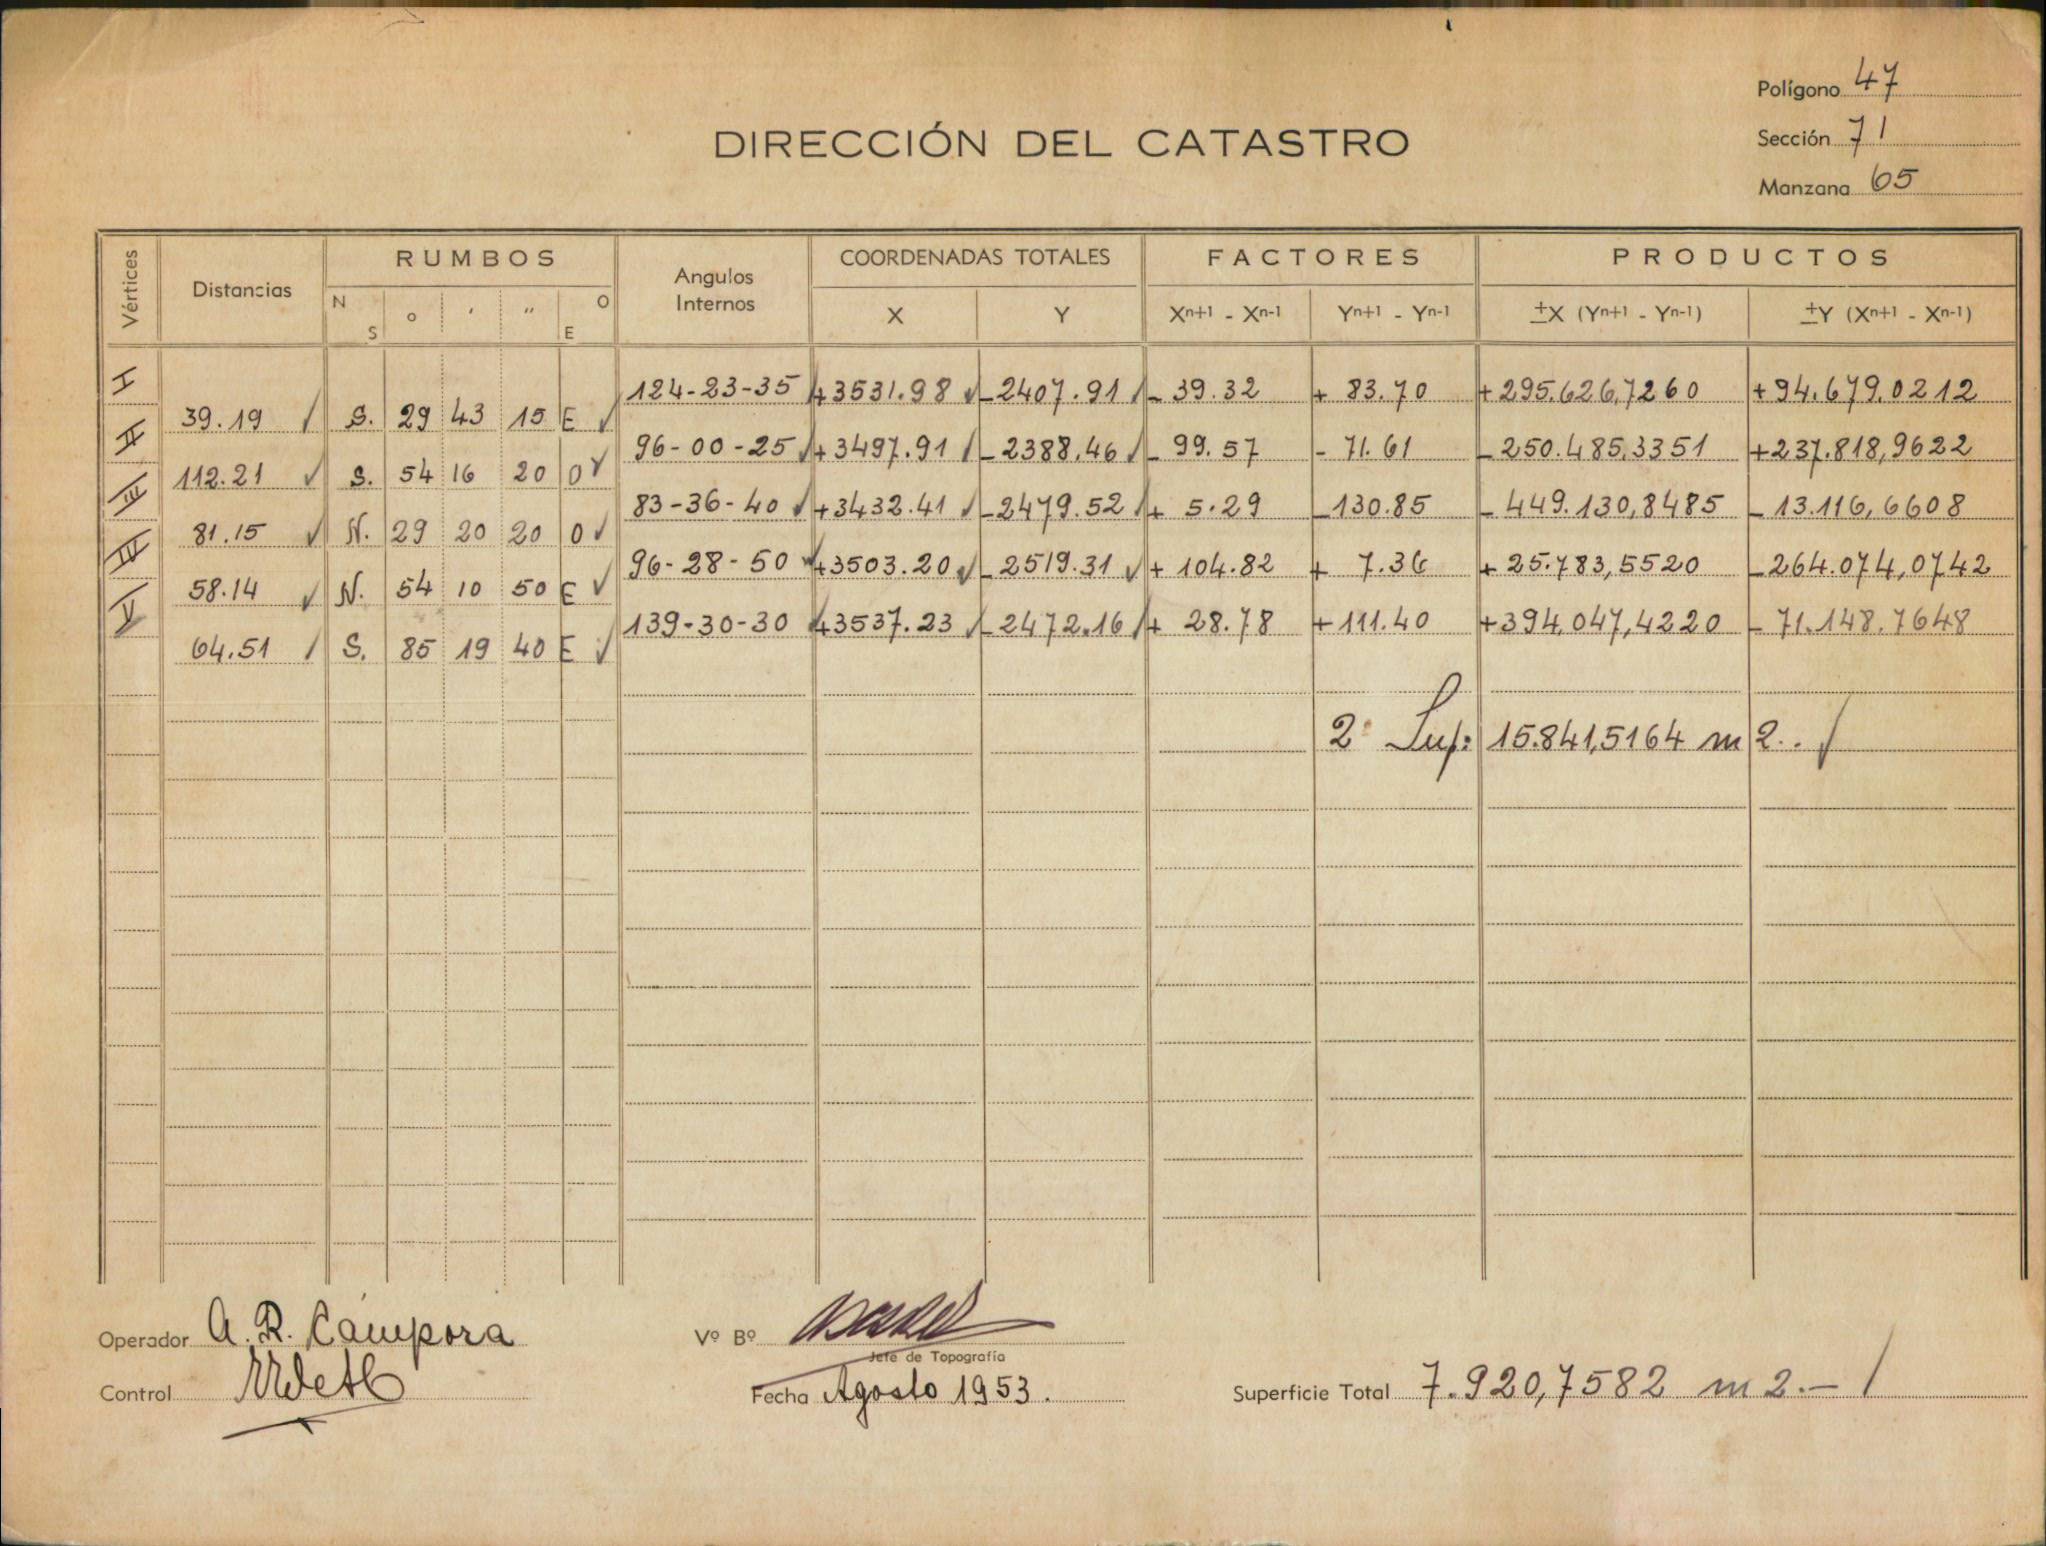 Polígono 47
DIRECCIÓN DEL CATASTRO
Sección 71
Manzana 65
Vértices Distancias RUMBOS Angulos Internos COORDENADAS TOTALES FACTORES PRODUCTOS
N S o ' " O E X Y Xn+1 - Xn-1 Yn+1 - Yn-1 ±X (Yn+1 - Yn-1) ±Y (Xn+1 - Xn-1)
I 124-23-35 +3531.98 -2407.91 - 39.32 + 83.70 +295.626,7260 +94.679,0212
39.19 S. 29 43 15 E
II 96-00-25 +3497.91 -2388.46 - 99.57 - 71.61 -250.485,3351 +237.818,9622
112.21 S. 54 16 20 O
III 83-36-40 +3432.41 -2479.52 + 5.29 -130.85 -449.130,8485 -13.116,6608
81.15 N. 29 20 20 O
IIII 96-28-50 +3503.20 -2519.31 + 104.82 + 7.36 +25.783,5520 -264.074,0742
58.14 N. 54 10 50 E
V 139-30-30 +3537.23 -2472.16 + 28.78 +111.40 +394.047,4220 - 71.148.7648
64.51 S. 85 19 40 E
2 Sup: 15.841,5164 m2.
Operador A. R. Cámpora Vº Bº
Jefe de Topografía
Control Fecha Agosto 1953. Superficie Total 7.920,7582 m2.-